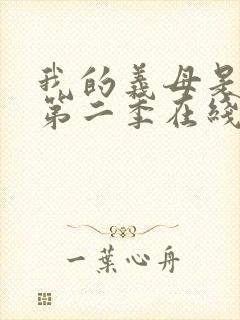 我的義母是
第二季在綫
一葉心舟